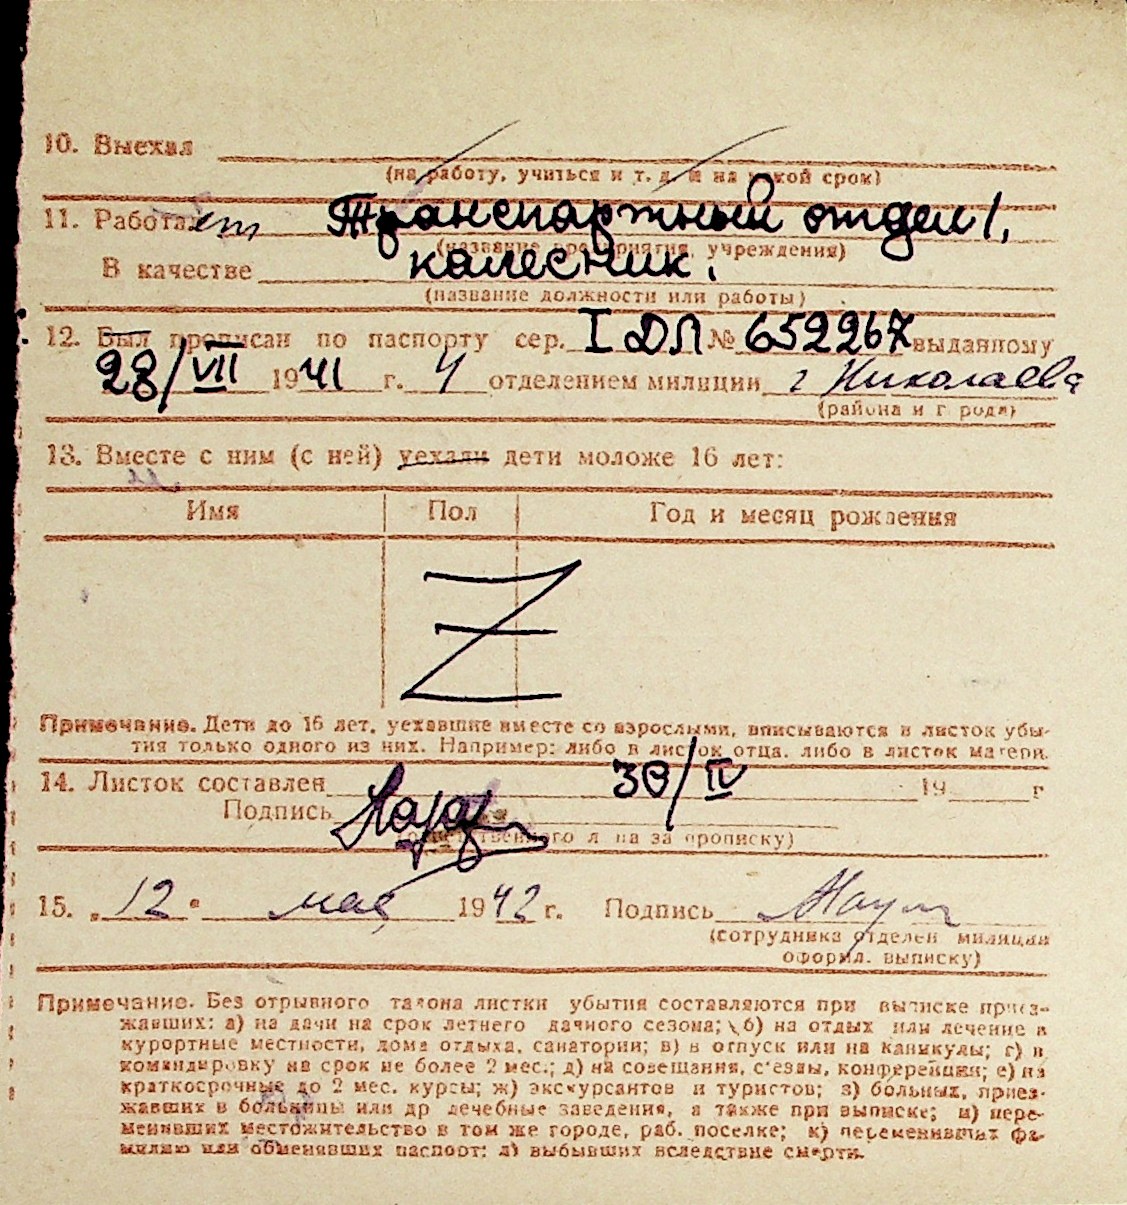 10. Выехал
(на работу, учиться и т. д. и на какой срок)
11. Работает Транспартный отдел 1,
(название предприятия, учреждения)
В качестве колесник.
(название должности или работы)
12. Был прописан по паспорту сер. I ДЛ № 652267 выданному
28/VII 1941 г. 4 отделением милиции г Николаева
(района и города)
13. Вместе с ним (с ней) уехали дети моложе 16 лет:
Имя Пол Год и месяц рождения
Z
Примечание. Дети до 16 лет, уехавшие вместе со взрослыми, вписываются в листок убы-
тия только одного из них. Например: либо в листок отца, либо в листок матери.
14. Листок составлен 30/IV 19 г
Подпись
(ответственного л на за прописку)
15. "12" мая 1942 г. Подпись
(сотрудника отделен милиции
оформл. выписку)
Примечание. Без отрывного талона листки убытия составляются при выписке приез-
жавших: а) на дачи на срок летнего дачного сезона; б) на отдых или лечение в
курортные местности, дома отдыха, санатории; в) в отпуск или на каникулы; г) в
командировку на срок не более 2 мес.; д) на совещания, с'езды, конференции; е) на
краткосрочные до 2 мес. курсы; ж) экскурсантов и туристов; з) больных, приез-
жавших в больницы или др лечебные заведения, а также при выписке; и) пере-
менивших местожительство в том же городе, раб. поселке; к) переменивших фа-
милию или обменявших паспорт; л) выбывших вследствие смерти.